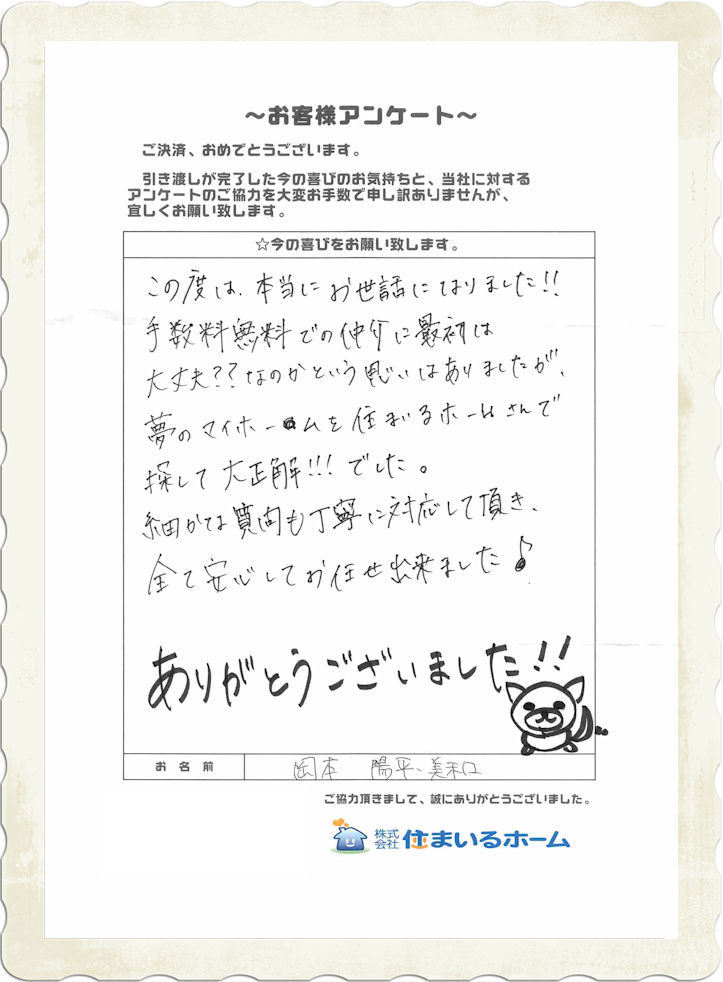 ～お客様アンケート～
ご決済、おめでとうございます。
引き渡しが完了した今の喜びのお気持ちと、当社に対する
アンケートのご協力を大変お手数で申し訳ありませんが、
宜しくお願い致します。
☆今の喜びをお願い致します。
この度は、本当にお世話になりました!!
手数料無料での仲介に最初は
大丈夫??なのかという思いはありましたが、
夢のマイホームを住まいるホームさんで
探して大正解!!!でした。
細かな質問も丁寧に対応して頂き、
全て安心してお任せ出来ました♪
ありがとうございました!!
お名前 岡本 陽平、美和
ご協力頂きまして、誠にありがとうございました。
株式会社 住まいるホーム